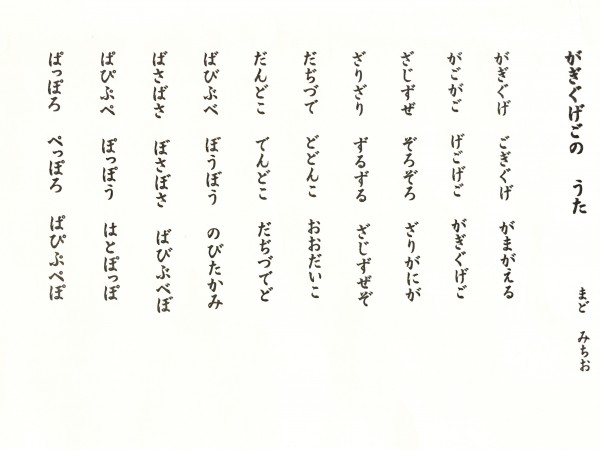 がぎぐげごの　うた
まど　みちお
がぎぐげ　ごぎぐげ　がまがえる
がごがご　げごげご　がぎぐげご
ざじずぜ　ぞろぞろ　ざりがにが
ざりざり　ずるずる　ざじずぜぞ
だぢづで　どどんこ　おおだいこ
だんどこ　でんどこ　だぢづでど
ばびぶべ　ぼうぼう　のびたかみ
ばさばさ　ぼさぼさ　ばびぶべぼ
ぱぴぷぺ　ぽっぽう　はとぽっぽ
ぱっぽろ　ぺっぽろ　ぱぴぷぺぽ